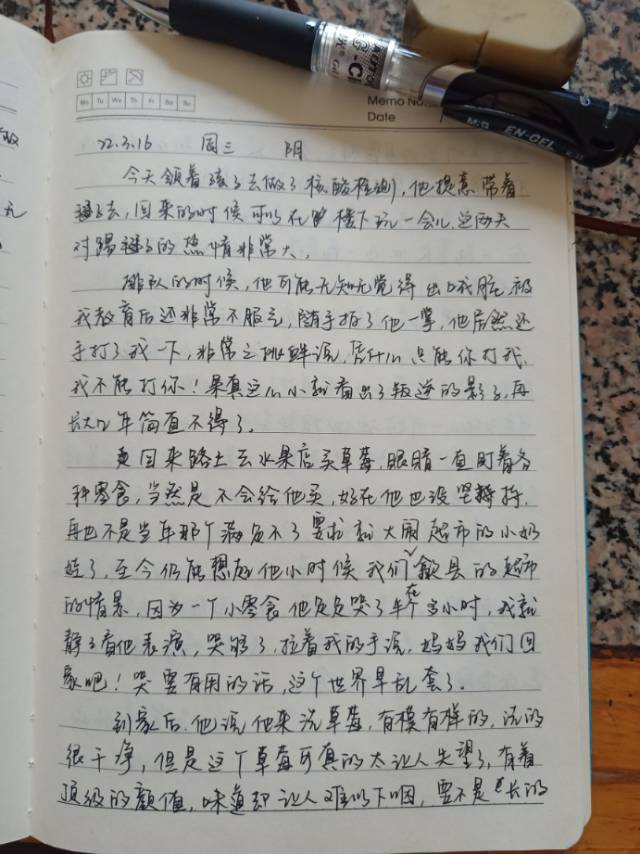 Mo Tu We Th Fr Sa Su
Memo No.
Date
M&G EN-GEL
22.3.16 周三 阴
今天领着孩子去做了核酸检测,他提意带着
毽子去,回来的时候可以在楼下玩一会儿,这两天
对踢毽子的热情非常大。
排队的时候,他可能无知无觉得出口脏,被
我教育后还非常不服气,随手拍了他一掌,他居然还
手打了我一下,非常之挑衅说,凭什么只能你打我,
我不能打你!果真这么小就看出了叛逆的影子,再
长大几年简直不得了。
回来路上去水果店买草莓,眼睛一直盯着各
种零食,当然是不会给他买,好在他也没坚持,
再也不是当年那个满足不了要求就大闹超市的小奶
娃了,至今仍能想起他小时候我们在歙县的超市
的情景,因为一个小零食他足足哭了半个多小时,我就
静静看他表演,哭够了,拉着我的手说,妈妈我们回
家吧!哭要有用的话,这个世界早乱套了。
到家后,他说他来洗草莓,有模有样的,洗的
很干净,但是这个草莓可真的太让人失望了,有着
顶级的颜值,味道却让人难以下咽,要不是它长的